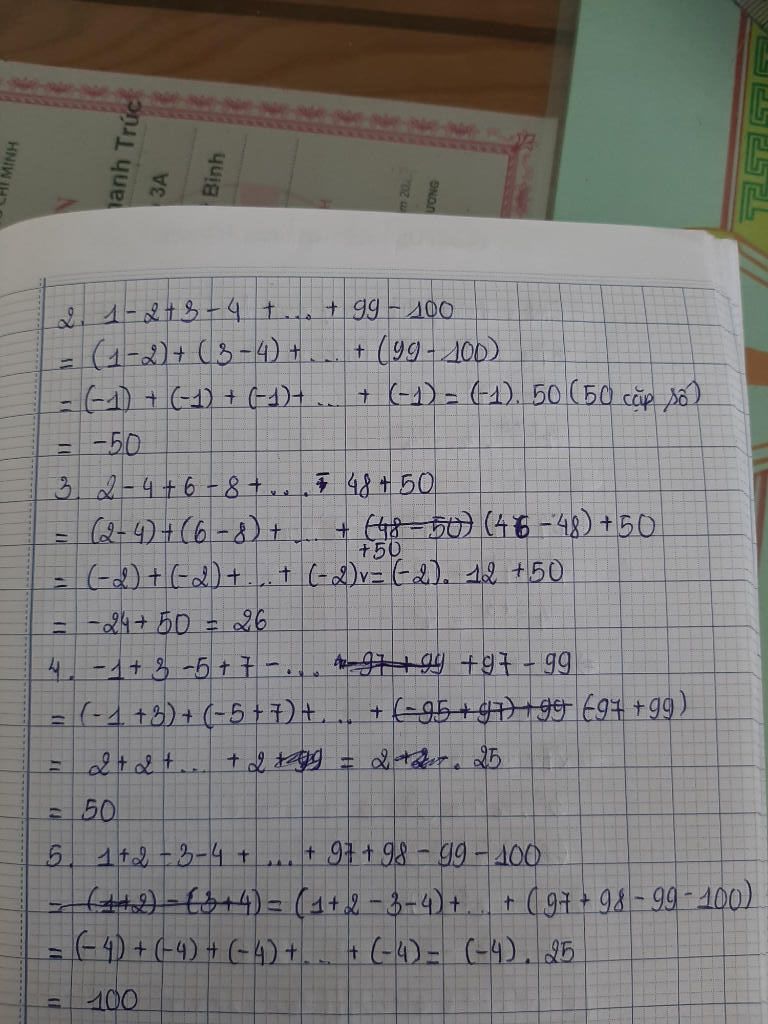 CHÍ MINH
hanh Trúc
3A
Bình
ƯƠNG
2. 1-2+3-4 +... + 99-100
= (1-2)+(3-4)+... + (99-100)
=(-1) + (-1) + (-1)+... + (-1) = (-1). 50 (50 cặp số)
= -50
3. 2-4+6-8+... - 48+50
= (2-4)+(6-8)+... + (48-50) (46-48)+50
= (-2)+(-2)+...+ (-2) +50 = (-2). 12 +50
= -24+50 = 26
4. -1+3-5+7-... -97+99 +97-99
= (-1+3)+(-5+7)+... + (-95+97)+99 (-97+99)
= 2+2+... + 2+99 = 2 . 25
= 50
5. 1+2-3-4+...+97+98-99-100
= (1+2)-(3+4) = (1+2-3-4)+...+(97+98-99-100)
= (-4)+(-4)+(-4)+...+(-4)= (-4). 25
= 100